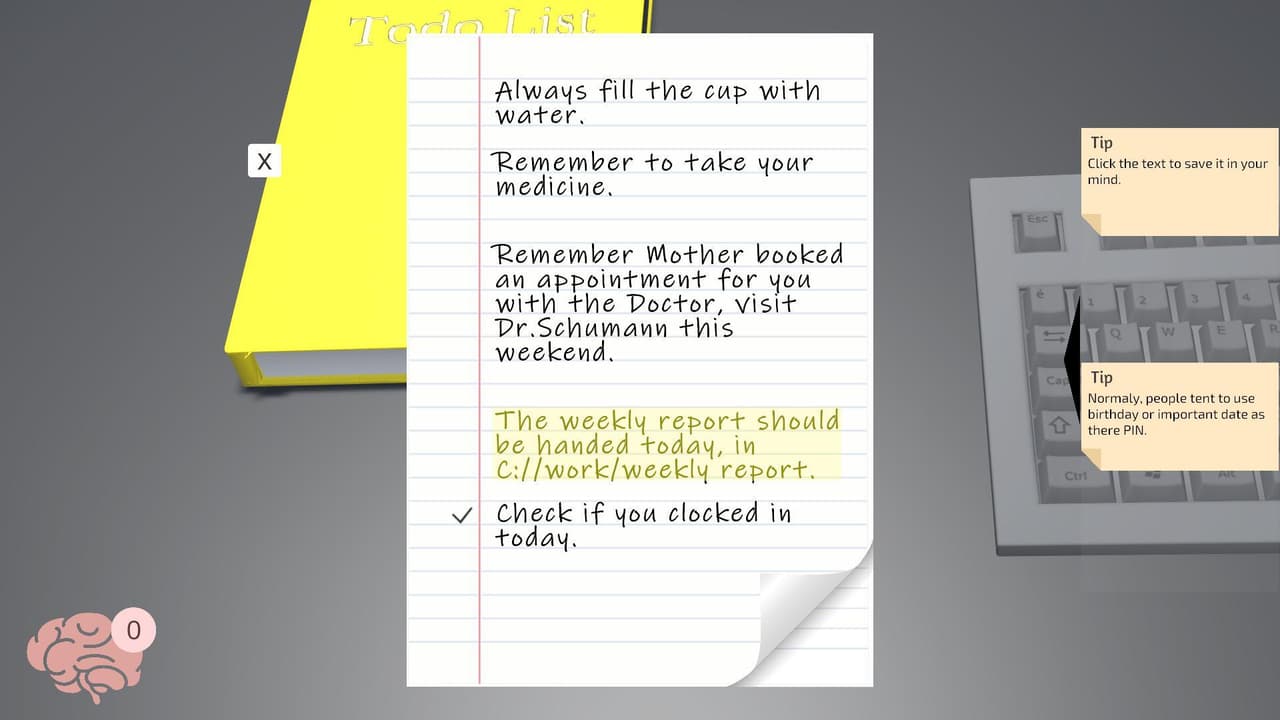 Todo List
Always fill the cup with
water.
Remember to take your
medicine.
Remember Mother booked
an appointment for you
with the Doctor, visit
Dr.Schumann this
weekend.
The weekly report should
be handed today, in
C://work/weekly report.
Check if you clocked in
today.
X
0
Tip
Click the text to save it in your
mind.
Esc
é 1 2 3 4
Q W E R
Cap
Tip
Normaly, people tent to use
birthday or important date as
there PIN.
Ctrl Alt